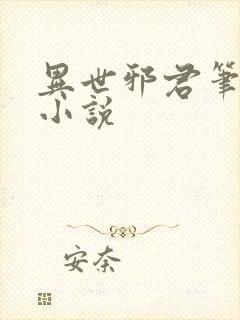 異世邪君筆
小說
安奈